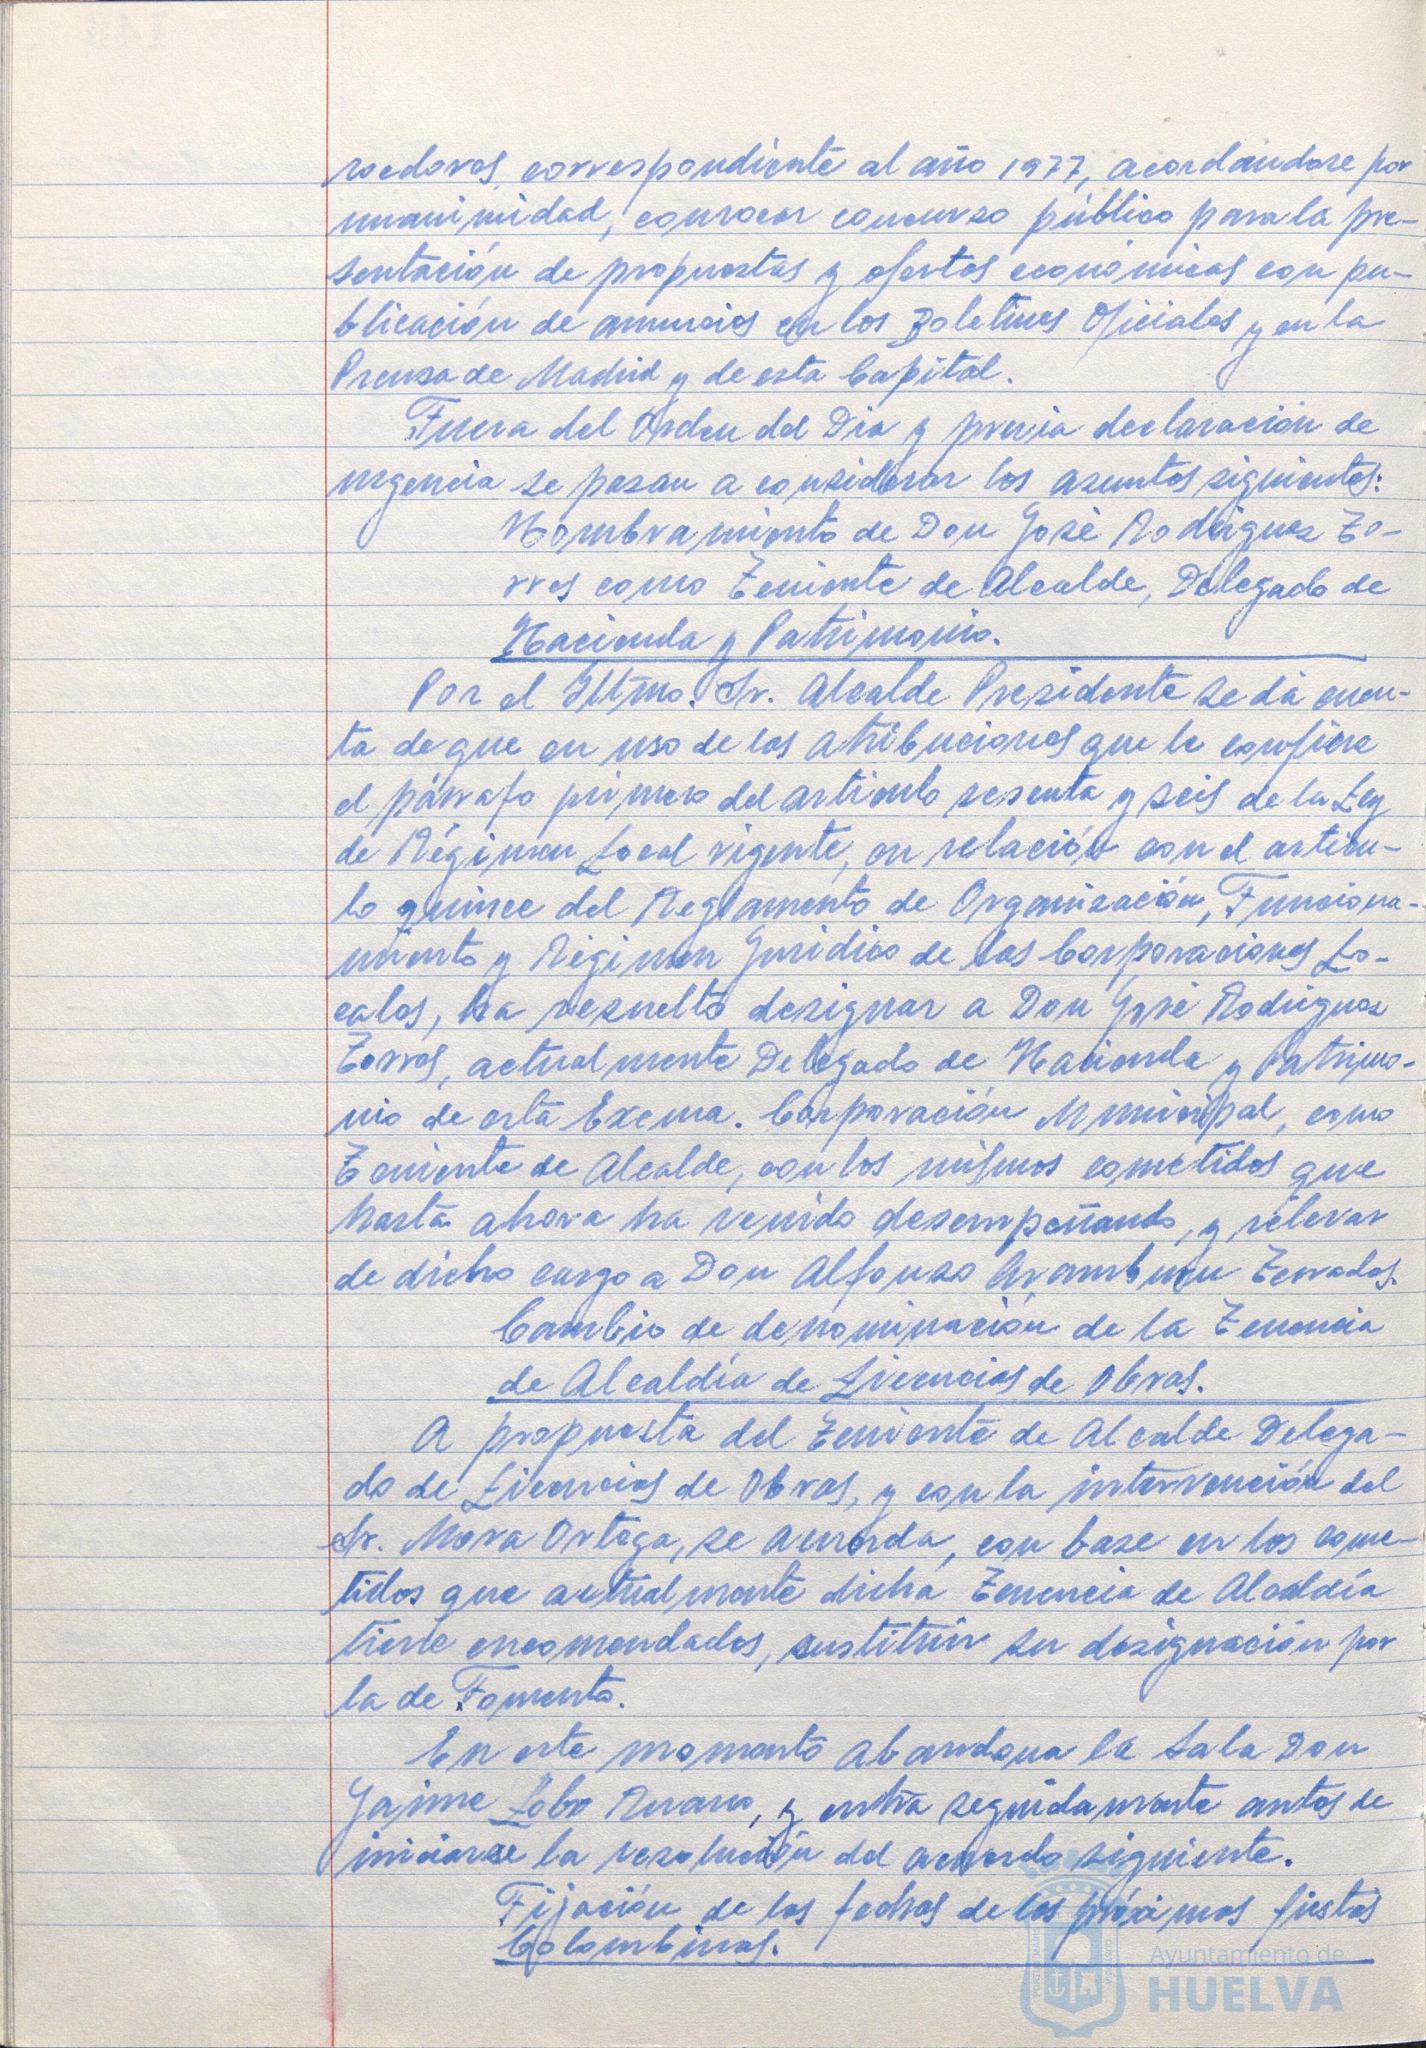 roedores, correspondiente al año 1977, acordándose por
unanimidad, convocar concurso público para la pre-
sentación de propuestas y ofertas económicas con pu-
blicación de anuncios en los Boletines Oficiales y en la
Prensa de Madrid y de esta Capital.
Fuera del Orden del Dia y previa declaración de
urgencia se pasan a considerar los asuntos siguientes:
Nombramiento de Don José Rodriguez To-
rres como Teniente de Alcalde, Delegado de
Hacienda y Patrimonio.
Por el Iltmo. Sr. Alcalde Presidente se dá cuen-
ta de que en uso de las atribuciones que le confiere
el párrafo primero del artículo sesenta y seis de la Ley
de Régimen Local vigente, en relación con el artícu-
lo quince del Reglamento de Organización, Funciona-
miento y Régimen Jurídico de las Corporaciones Lo-
cales, ha resuelto designar a Don José Rodriguez
Torres, actualmente Delegado de Hacienda y Patrimo-
nio de esta Excma. Corporación Municipal, como
Teniente de Alcalde, con los mismos cometidos que
hasta ahora ha venido desempeñando, y relevar
de dicho cargo a Don Alfonso Aramburu Terrades.
Cambio de denominación de la Tenencia
de Alcaldía de Licencias de Obras.
A propuesta del Teniente de Alcalde Delega-
do de Licencias de Obras, y con la intervención del
Sr. Mora Ortega, se acuerda, con base en los come-
tidos que actualmente dicha Tenencia de Alcaldía
tiene encomendados, sustituir su designación por
la de Fomento.
En este momento abandona la Sala Don
Jaime Lobo Ruano, y entra seguidamente antes de
iniciarse la resolución del acuerdo siguiente.
Fijación de las fechas de las próximas fiestas
Colombinas.
Ayuntamiento de
HUELVA